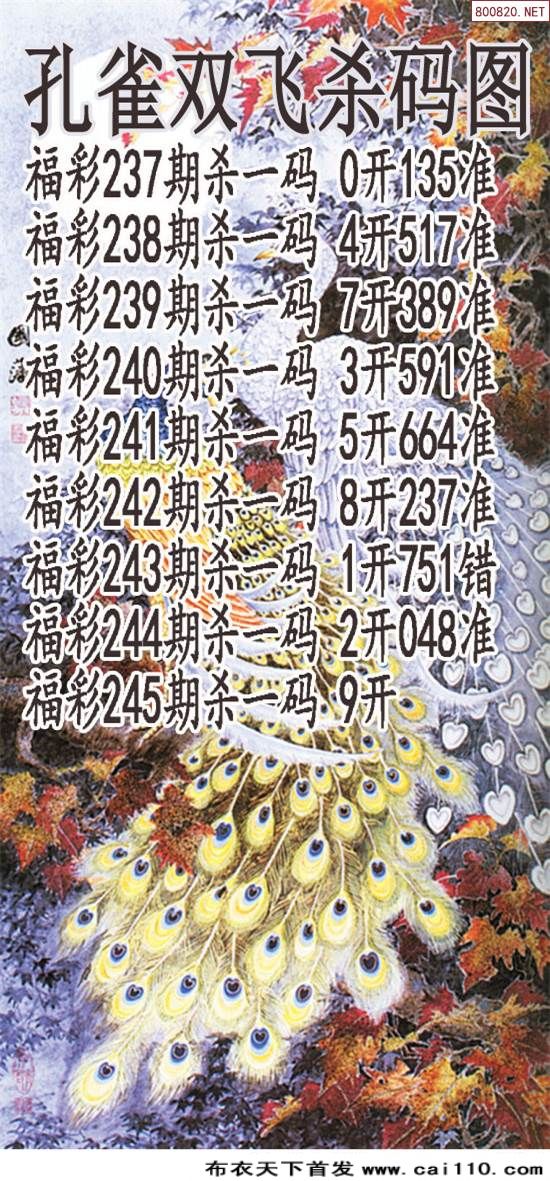 800820.NET
孔雀双飞杀码图
福彩237期杀一码 0开135准
福彩238期杀一码 4开517准
福彩239期杀一码 7开389准
福彩240期杀一码 3开591准
福彩241期杀一码 5开664准
福彩242期杀一码 8开237准
福彩243期杀一码 1开751错
福彩244期杀一码 2开048准
福彩245期杀一码 9开
布衣天下首发 www.cai110.com